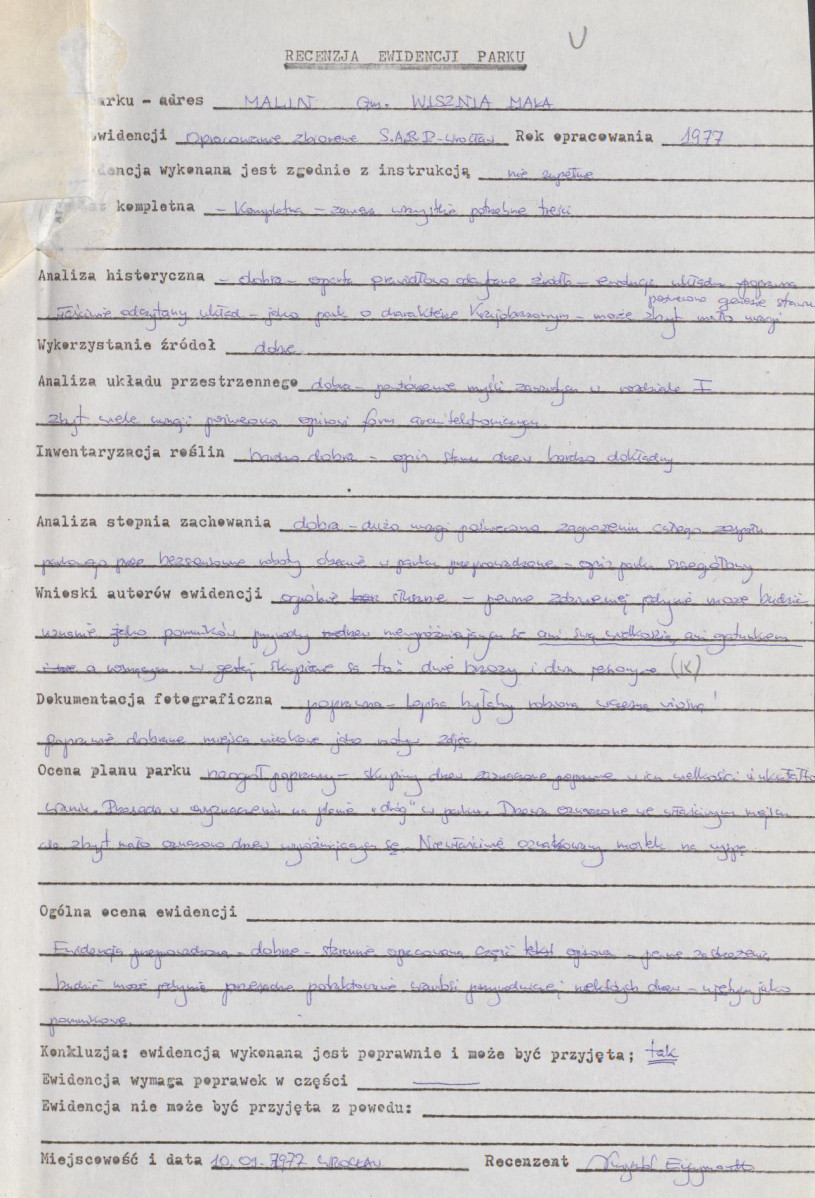 RECENZJA EWIDENCJI PARKU
arku - adres MALIN Gm. WISZNIA MAŁA
widencji Opracowanie zbiorowe S.A.R.P-Wrocław Rok opracowania 1977
dencja wykonana jest zgodnie z instrukcją nie zupełnie
kompletna - Kompletna - zawiera wszystkie potrzebne treści
Analiza historyczna - dobra - oparta prawidłowo źródła - ewolucja układu poprawna
poświęcono genezie stawu
właściwie odczytany układ - jako park o charakterze Krajobrazowym - może zbyt mało uwagi
Wykorzystanie źródeł dobre
Analiza układu przestrzennego dobra - powtórzenie myśli zawartych w rozdziale I
zbyt wiele uwagi poświęcono opisowi form architektonicznych.
Inwentaryzacja roślin bardzo dobra - opis stanu drzew bardzo dokładny
Analiza stopnia zachowania dobra - dużo uwagi poświęcono zagrożeniu całego zespołu
parkowego przez bezsensowne roboty w parku przeprowadzone - opis parku szczegółowy
Wnioski autorów ewidencji ogólnie słuszne - pewne jedynie może budzić
uznanie jako pomników przyrody drzew niewyróżniających się ani swą wielkością ani gatunkiem
a w gęstej skupione są to: dwie brzozy i dwa (IX)
Dokumentacja fotograficzna poprawna - Lepsza byłaby robiona wczesną wiosną!
Poprawnie dobrane miejsca widokowe jako motyw zdjęć.
Ocena planu parku naogół poprawny - skupiny drzew zaznaczone poprawnie w ich wielkości i
Przesada w wyznaczeniu na planie "dróg" w parku. Drzewa oznaczone we właściwym miejscu
ale zbyt mało oznaczono drzew wyróżniających się. Niewłaściwie mostek na wyspę.
Ogólna ocena ewidencji
Ewidencja przeprowadzona - dobrze - starannie opracowana część opisowa - pewne zastrzeżenia
budzić może jedynie przesadne potraktowanie przyrodniczej niektórych drzew - jako
pomnikowe.
Konkluzja: ewidencja wykonana jest poprawnie i może być przyjęta; tak
Ewidencja wymaga poprawek w części
Ewidencja nie może być przyjęta z powodu:
Miejscowość i data 10.01.7977 WROCŁAW Recenzent